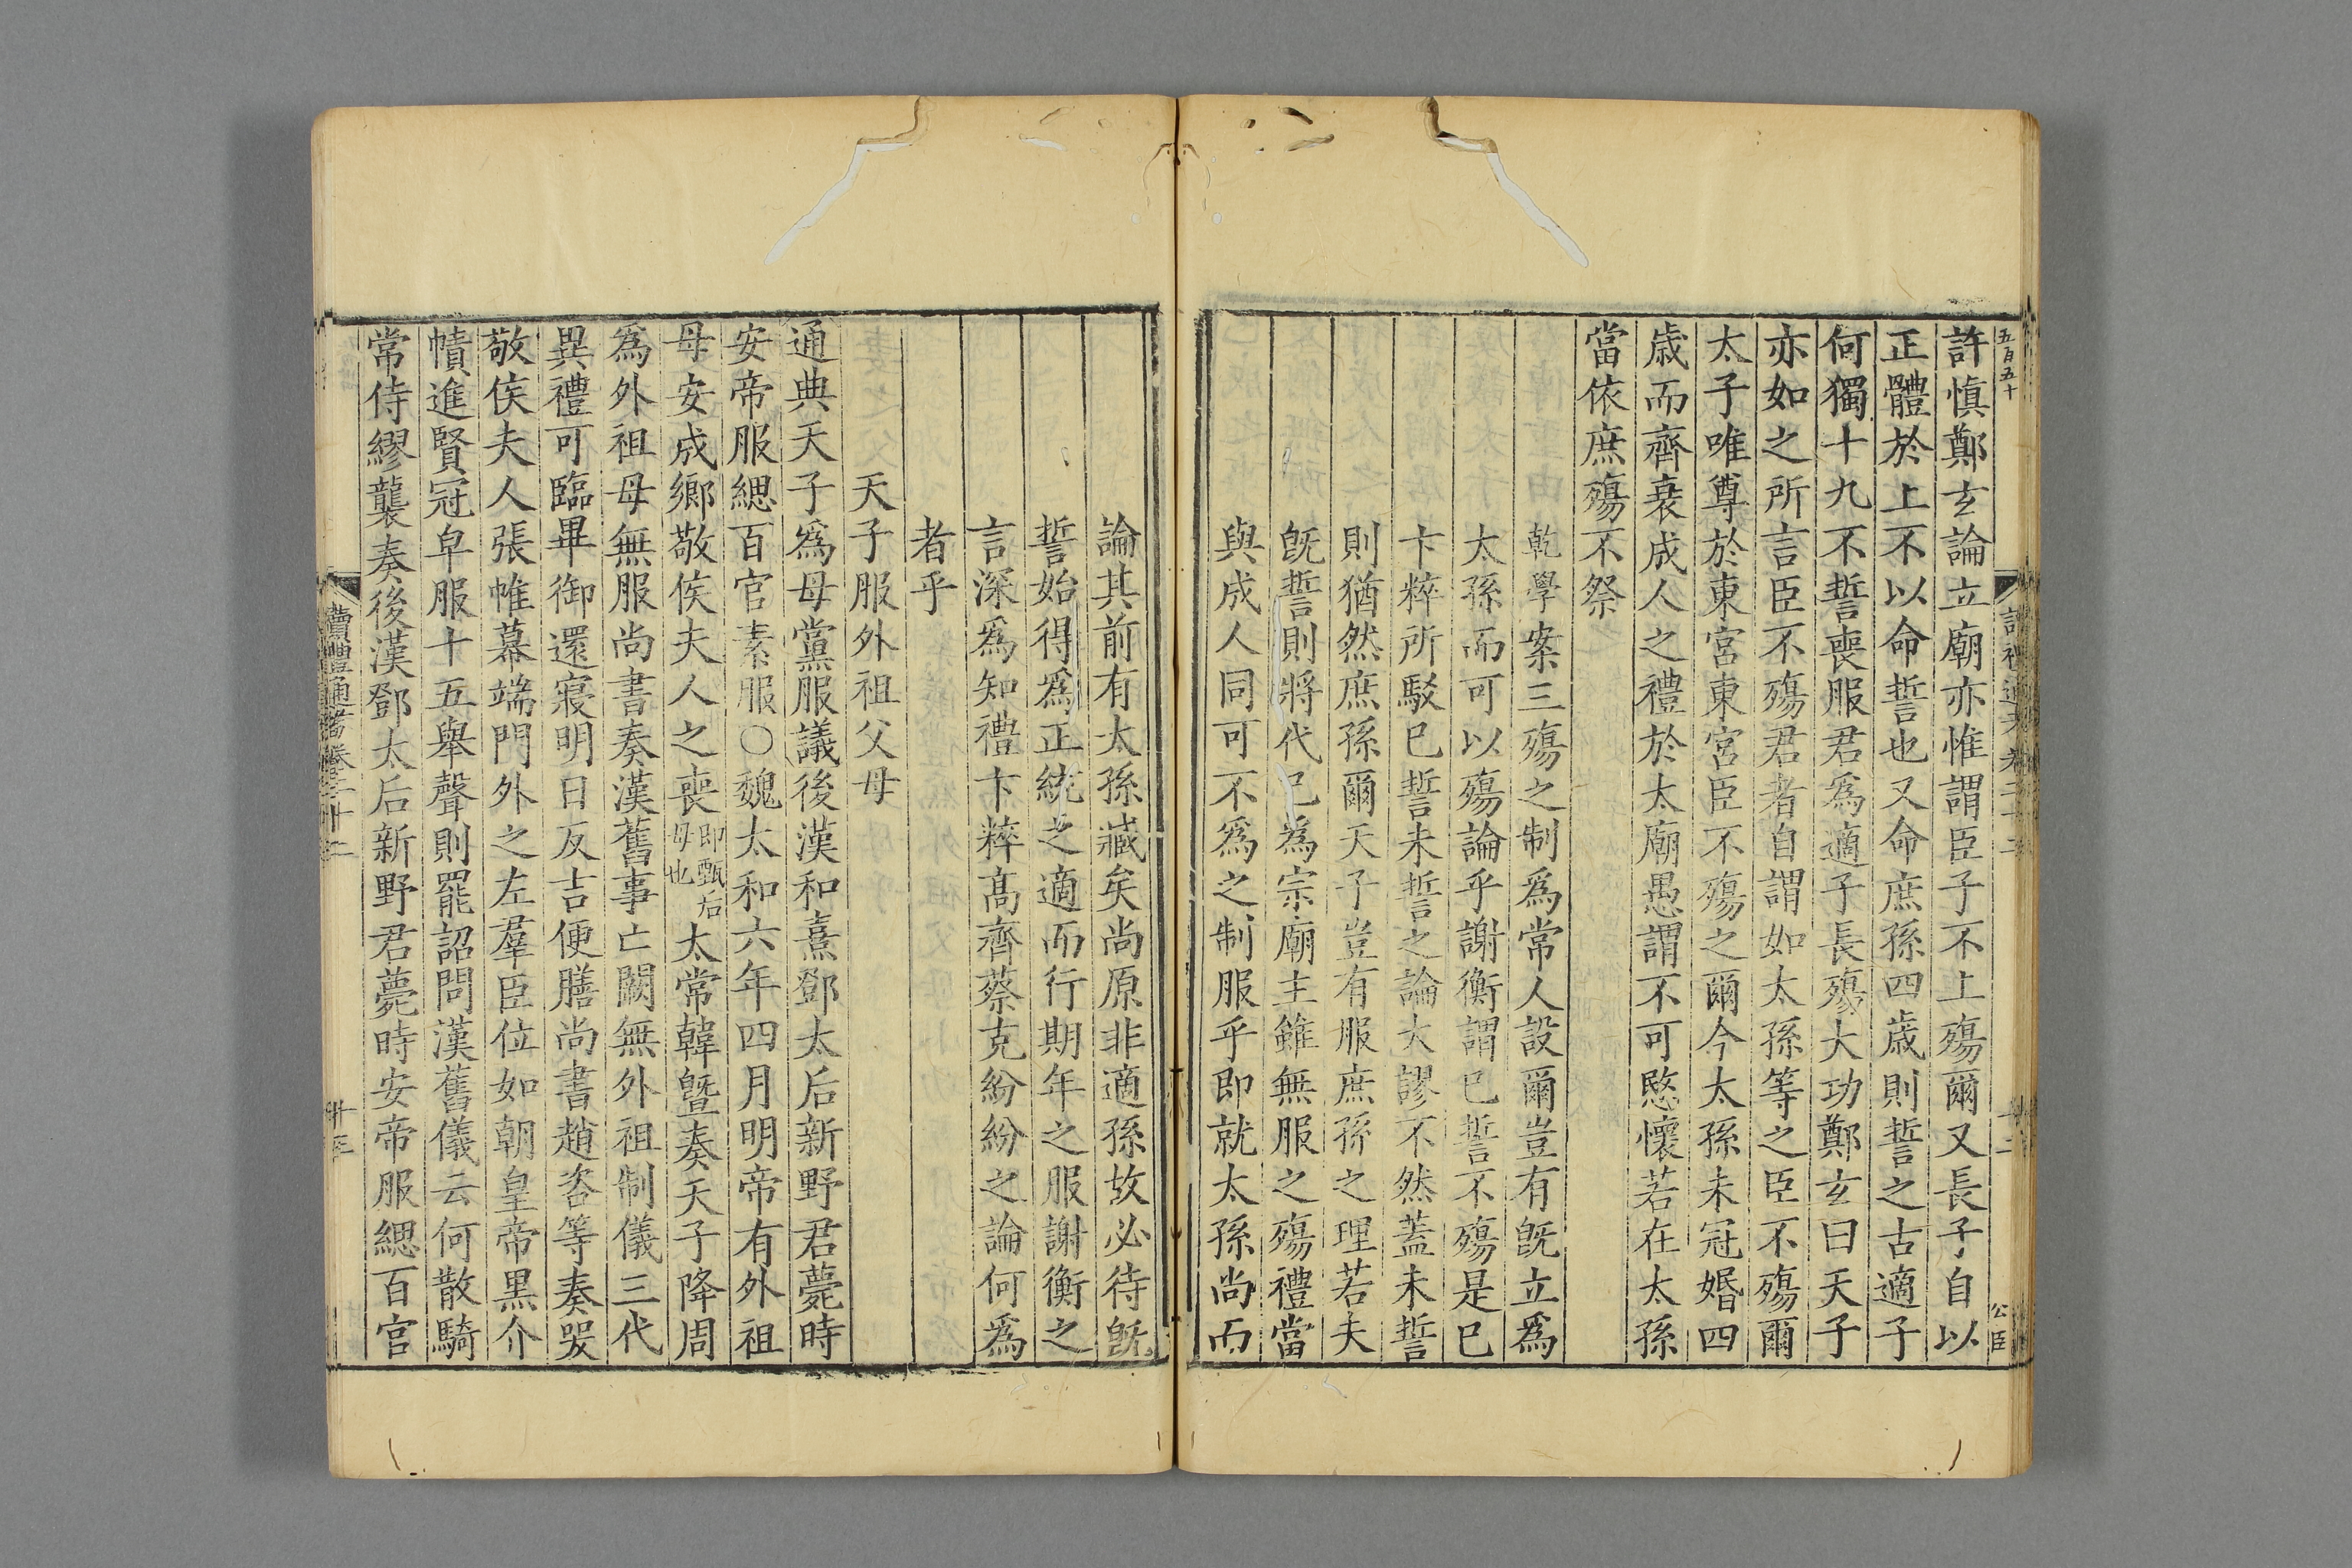 五百五十
公臣
許愼鄭玄論立廟亦惟謂臣子不上殤爾又長子自以
正體於上不以命誓也又命庶孫四歳則誓之古適子
何獨十九不誓喪服君爲適子長殤大功鄭玄曰天子
亦如之所言臣不殤君者自謂如太孫等之臣不殤爾
太子唯尊於東宮東宮臣不殤之爾今太孫未冠婚四
歳而齊衰成人之禮於太廟愚謂不可愍懷若在太孫
當依庶殤不祭
乾學案三殤之制爲常人設爾豈有旣立爲
太孫而可以殤論乎謝衡謂已誓不殤是已
卞粹所駁已誓未誓之論大謬不然蓋未誓
則猶然庶孫爾天子豈有服庶孫之理若夫
旣誓則將代已爲宗廟主雖無服之殤禮當
與成人同可不爲之制服乎即就太孫尚而
論其前有太孫臧矣尚原非適孫故必待旣
誓始得爲正統之適而行期年之服謝衡之
言深爲知禮卞粹高齊蔡克紛紛之論何爲
者乎
天子服外祖父母
通典天子爲母黨服議後漢和熹鄧太后新野君薨時
安帝服緦百官素服〇魏太和六年四月明帝有外祖
母安成鄉敬侯夫人之喪即甄后母也太常韓曁奏天子降周
爲外祖母無服尚書奏漢舊事亡闕無外祖制儀三代
異禮可臨畢御還寢明日反吉便膳尚書趙咨等奏哭
敬侯夫人張帷幕端門外之左羣臣位如朝皇帝黑介
幘進賢冠皁服十五舉聲則罷詔問漢舊儀云何散騎
常侍繆襲奏後漢鄧太后新野君薨時安帝服緦百官
讀禮通考卷二十二